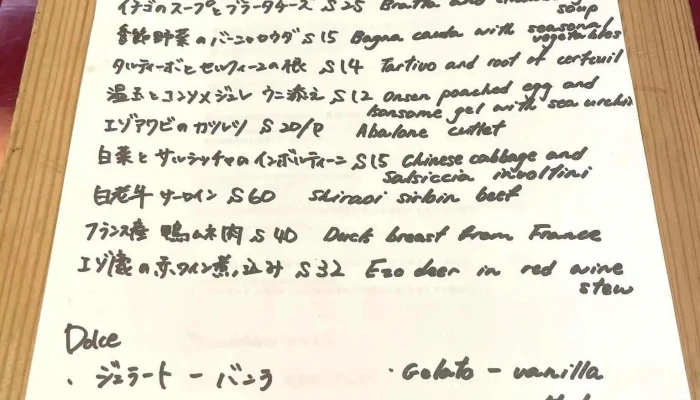 イチゴのスープとブラータチーズ S25 Bratta and
soup
季節野菜のバーニャカウダ S15 Bagna cauda with seasonal
vegetables
タルティーボとセルフィーユの根 S14 Tartivo and root of cerfeuil
温玉とコンソメジュレ ウニ添え S12 Onsen poached egg and
konsome gel with sea urchin
エゾアワビのカツレツ S20/P Abalone cutlet
白菜とサルシッチャのインボルティーニ S15 Chinese cabbage and
Salsiccia involtini
白老牛サーロイン S60 Shiraoi sirloin beef
フランス産 鴨ムネ肉 S40 Duck breast from France
エゾ鹿の赤ワイン煮込み S32 Ezo deer in red wine
stew
Dolce
・ジェラート - バニラ ・Gelato - vanilla